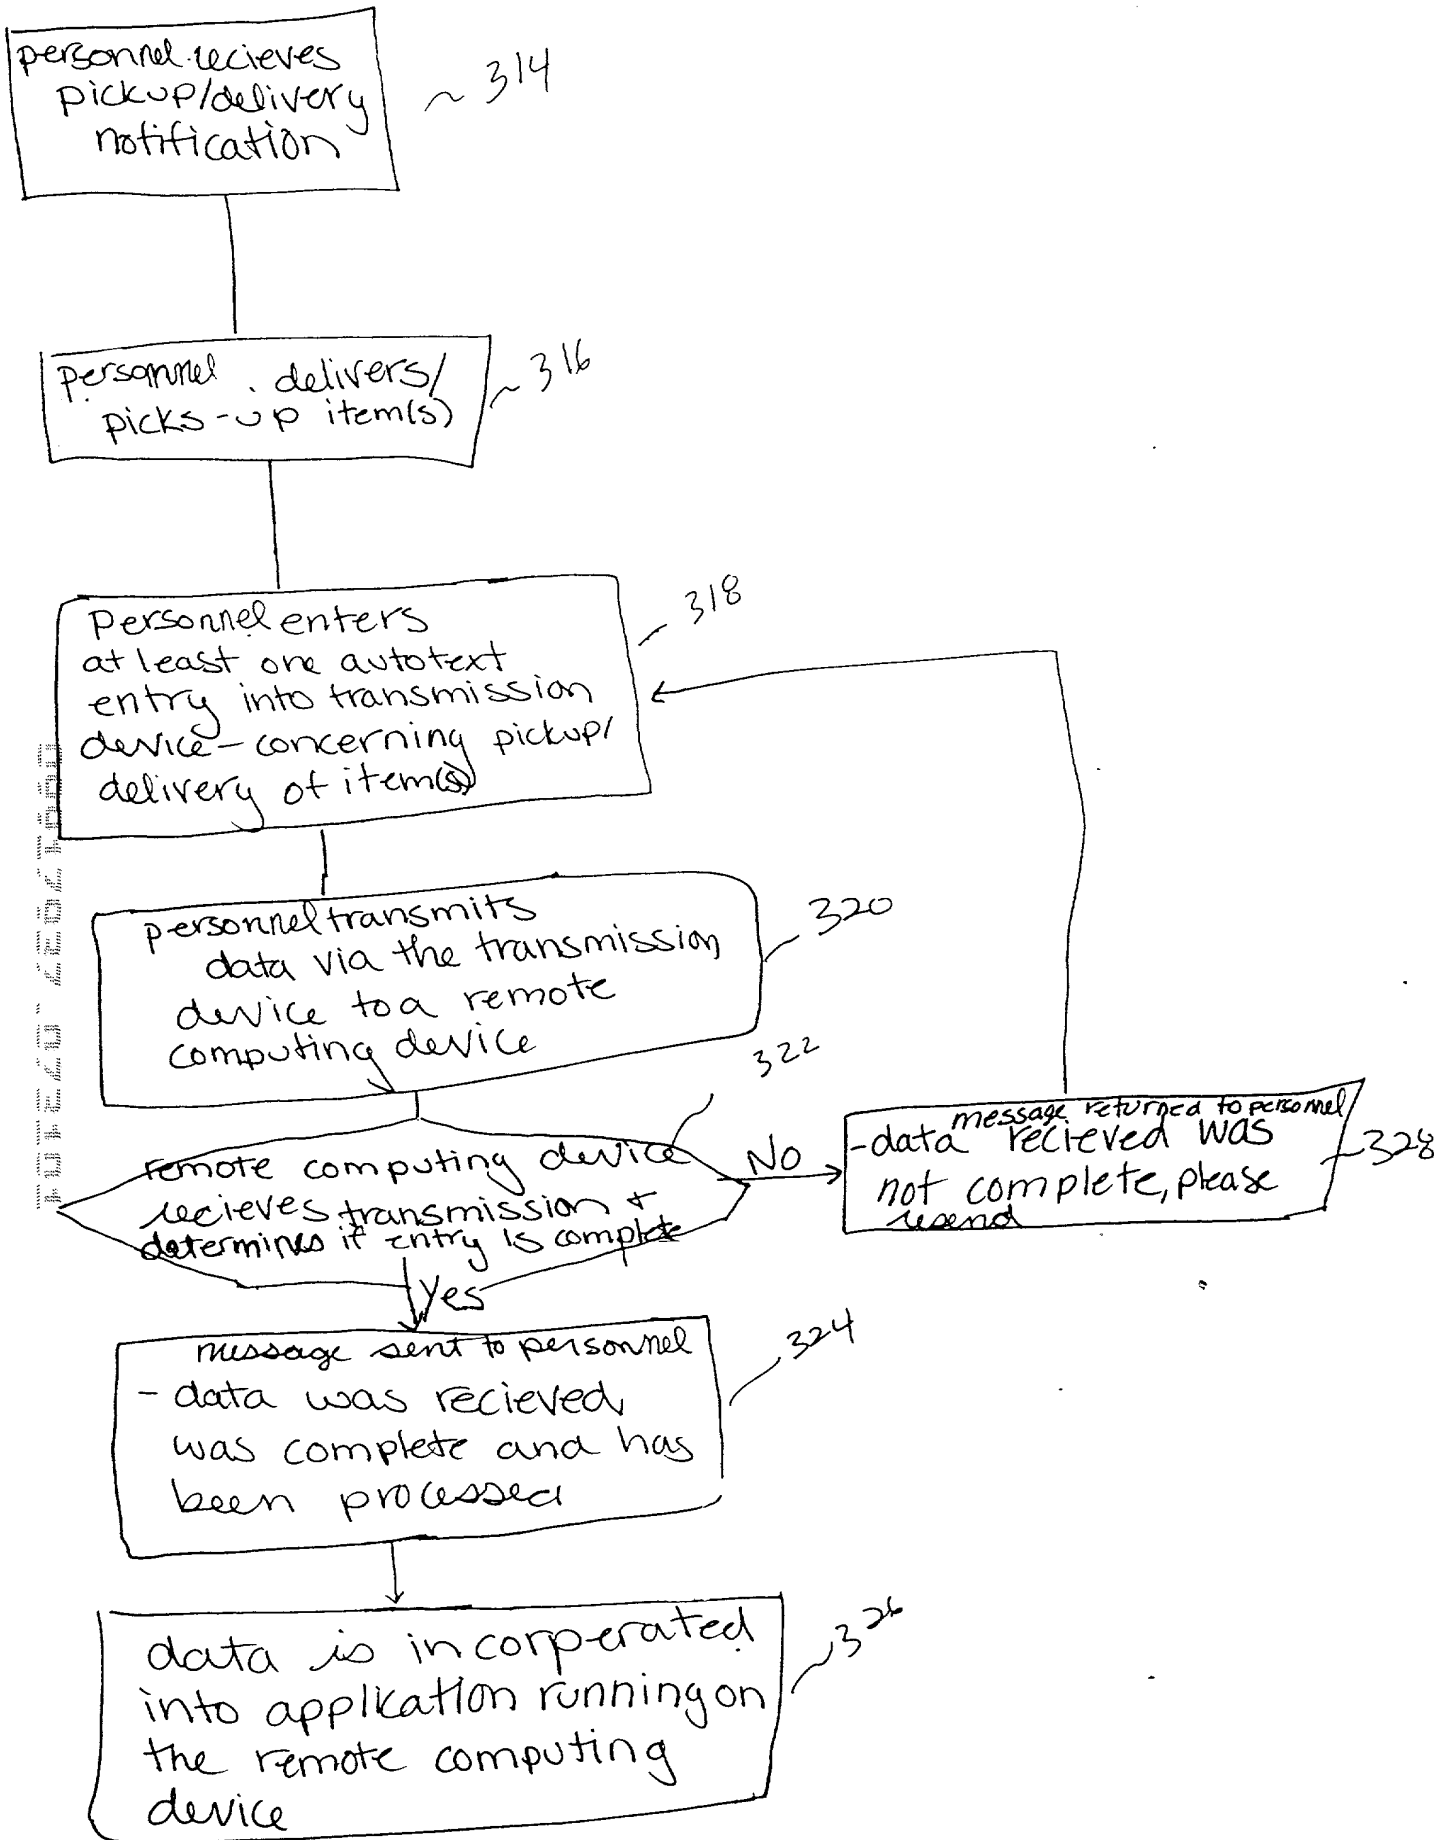 personnel recieves
pickup/delivery
notification
314
personnel delivers/
picks-up item(s)
316
Personnel enters
at least one autotext
entry into transmission
device-concerning pickup/
delivery of item(s)
318
personnel transmits
data via the transmission
device to a remote
computing device
320
322
remote computing device
recieves transmission +
determines if entry is complete
No
message returned to personnel
-data recieved was
not complete, please
resend
328
Yes
message sent to personnel
- data was recieved,
was complete and has
been processed
324
data is incorperated
into application running on
the remote computing
device
326